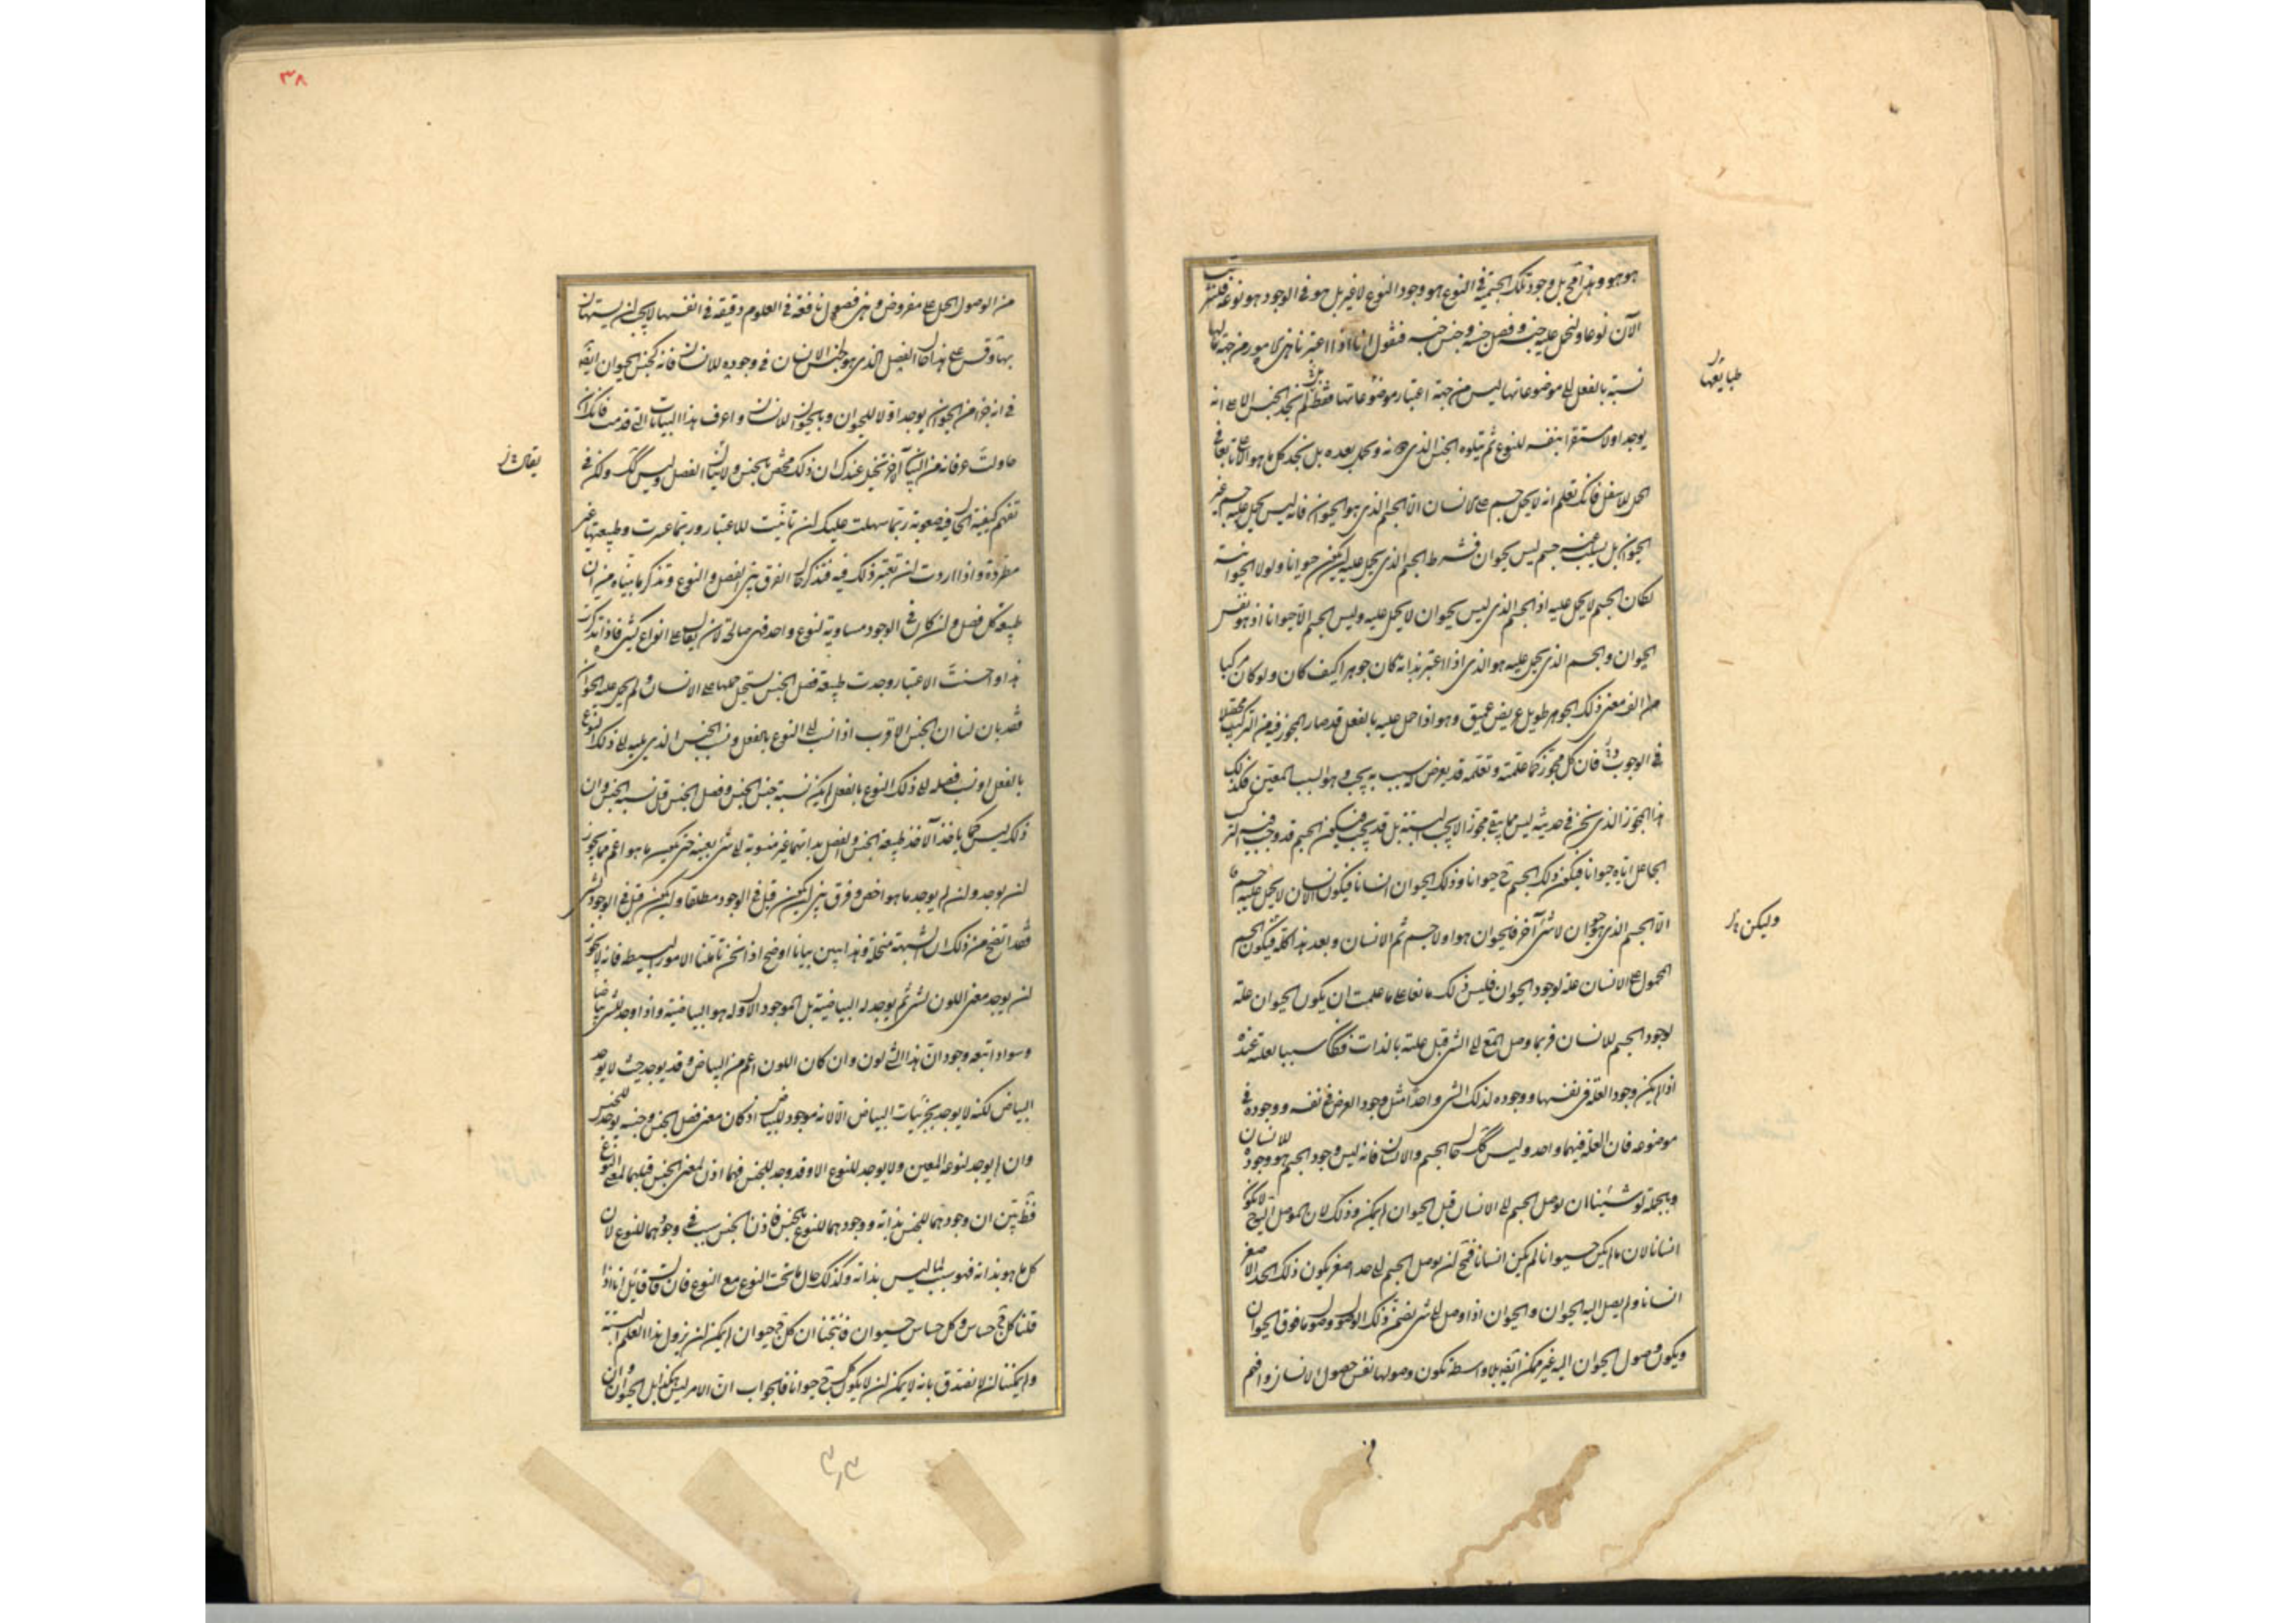 هو هو وهذا قح بل وجود تلك الجسمية في النوع هو وجود النوع لا غير بل هو في الوجود هو نوعه فلنرتب
الآن نوعا ولنحمل عليه جنسه وفصل جنسه وجنس جنسه فنقول انا اذا اعتبرنا هذه الامور من جهة مالها
نسبة بالفعل الى موضوعاتها ليس من جهة اعتبار موضوعاتها فقط لم نجد الجنس الاعلى انه
يوجد اولا مستقرا بنفسه للنوع ثم يتلوه الجنس الذي دونه ويحمل بعده بل نجد كل ما هو اعلى تابعا في
الحمل للاسفل فانك تعلم انه لا يحمل جسم على الانسان الا الجسم الذي هو الحيوان فانه ليس يحمل عليه جسم غير
الحيوان بل يسلب عنه جسم ليس بحيوان فشرط الجسم الذي يحمل عليه ان يكون حيوانا ولولا الحيوانية
لكان الجسم لا يحمل عليه اذ الجسم الذي ليس بحيوان لا يحمل عليه وليس الجسم الا حيوانا اذ هو نفس
الحيوان والجسم الذي يحمل عليه هو الذي اذا اعتبر بذاته كان جوهرا كيف كان ولو كان مركبا
من الف معنى ذلك الجوهر طويل عريض عميق وهو اذا حمل عليه بالفعل قد صار المجوز فيه من التركيب محصلا
في الوجوب فان كل مجوز كما علمته وتعلمه قد يعرض له سبب به يجب وهو السبب المعين فكذلك
هذا المجوز الذي نحن في حديثه ليس مما يبقى مجوزا لا يجب البتة بل قد يجب فيكون الجسم قد وجب فيه التركيب
الجاعل اياه حيوانا فيكون ذلك الجسم ح حيوانا وذلك الحيوان انسانا فيكون الانسان لا يحمل عليه جسم
الا الجسم الذي هو حيوان لا شئ آخر فالحيوان هو اولا جسم ثم الانسان وبعد هذا كله فيكون الجسم
المحمول على الانسان علة لوجود الحيوان فليس ذلك مانعا على ما علمت ان يكون الحيوان علة
لوجود الجسم للانسان فربما وصل المع الى الشئ قبل علته بالذات فكان سببا لعلته عنده
اذا لم يكن وجود العلة في نفسها ووجوده لذلك الشئ واحدا مثل وجود العرض في نفسه ووجوده في
موضوعه فان العلة فيهما واحد وليس كك حال الجسم والانسان فانه ليس وجود الجسم هو وجوده للانسان
وبجملة لو شئنا ان نوصل الجسم الى الانسان قبل الحيوان لم يمكن وذلك لان الموصل اليه ح لا يكون
انسانا لان ما لم يكن حيوانا لم يكن انسانا فمح ان نوصل الجسم الى حد اصغر يكون ذلك الحد الاصغر
انسانا ولم يصل اليه الحيوان والحيوان اذا وصل الى شئ تضمن ذلك الوصول وصول ما فوق الحيوان
ويكون وصول الحيوان اليه غير ممكن الا بلا واسطة تكون وصولها نفس حصول الانسان وافهم
طبايعها
وليكن
من الوصول الحمل على مفروض وهذه فصول نافعة في العلوم دقيقة في انفسها لا يجب ان يستهان
بها وقس على هذا حال الفصل الذي هو لجنس الانسان في وجوده للانسان فانه كجنس الحيوان ايضا
في انه جزء من الحيوان يوجد اولا للحيوان وبالحيوان للانسان واعرف هذا البيانات التي قدمت فانك ان
حاولت عرفانه من البيان الآخر تخيل عندك ان ذلك مختص بالجنس ولا يتناول الفصل وليس كك ولكن في
تفهم كيفية الحال فيه صعوبة ربما سهلت عليك ان تاتيت للاعتبار وربما عسرت وطبيعتها غير
مطردة واذا اردت ان تعتبر ذلك فيه فتذكر حال الفرق بين الفصل والنوع وتذكر ما بيناه من ان
طبيعة كل فصل وان كان في الوجود مساوية لنوع واحد فهي صالحة لان يقال على انواع كثيرة فاذا تذكرت
هذا واحسنت الاعتبار وجدت طبيعة فصل الجنس يستحيل حملها على الانسان ولم يحمل عليه الحيوان
فقد بان لنا ان الجنس الاقرب اذا نسب الى النوع بالفعل ونسب الجنس الذي يليه الى ذلك النوع
بالفعل او نسب فصله الى ذلك النوع بالفعل لم يكن نسبة جنس الجنس وفصل الجنس قبل نسبة الجنس وان
ذلك ليس كما ياخذ الآخذ طبيعة الجنس والفصل بذاتهما غير منسوبة الى شئ بعينه حتى يكون ما هو اعم مما يجوز
ان يوجد وان لم يوجد ما هو اخص وفرق بين ان يكون قبل في الوجود مطلقا وان يكون قبل في الوجود لشئ
فقد اتضح من ذلك ان الشبهة منحلة وهذا يبين بيانا اوضح اذا نحن تاملنا الامور البسيطة فانه لا يجوز
ان يوجد معنى اللون لشئ ثم يوجد له البياضية بل الموجود الاول له هو البياضية واذا وجد لشئ بياضا
وسوادا تبعه وجود ان هذا الشئ لون وان كان اللون اعم من البياض وقد يوجد حيث لا يوجد
البياض لكنه لا يوجد بجزئيات البياض الا لانه موجود للبياض اذ كان معنى فصل الجنس وجنسه يوجد للجنس
وان لم يوجد لنوعه المعين ولا يوجد للنوع الا وقد وجد للجنس فهما اذن لمعنى الجنس قبلهما لمعنى النوع
فقد تبين ان وجودهما للجنس بذاته ووجودهما للنوع بالجنس فاذن الجنس سبب في وجودهما للنوع لان
كل ما هو بذاته فهو سبب لما ليس بذاته وكذلك حال ما تحت النوع مع النوع فان قال قائل انا اذا
قلنا كل ج حساس وكل حساس حيوان فانتجنا ان كل ج حيوان لم يمكن ان يزول هذا العلم البتة
ولم يمكننا ان لا نصدق بانه لا يمكن ان لا يكون كل ج حيوانا فالجواب ان الامر ليس هكذا بل الحيوان وان
يقال
٣٨